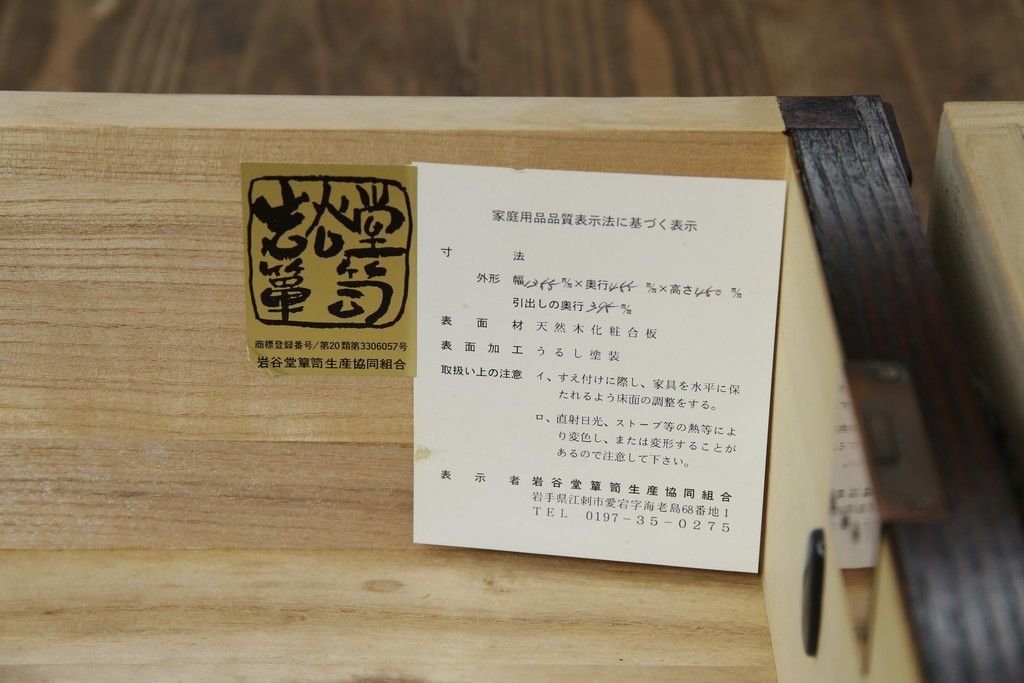 岩谷堂
簞笥
商標登録番号/第20類第3306057号
岩谷堂簞笥生産協同組合
家庭用品品質表示法に基づく表示
寸法
外形 幅 m/m×奥行 m/m×高さ450 m/m
引出しの奥行 m/m
表面材 天然木化粧合板
表面加工 うるし塗装
取扱い上の注意 イ、すえ付けに際し、家具を水平に保
たれるよう床面の調整をする。
ロ、直射日光、ストーブ等の熱等によ
り変色し、または変形することが
あるので注意して下さい。
表示者 岩谷堂簞笥生産協同組合
岩手県江刺市愛宕字海老島68番地1
TEL 0197-35-0275